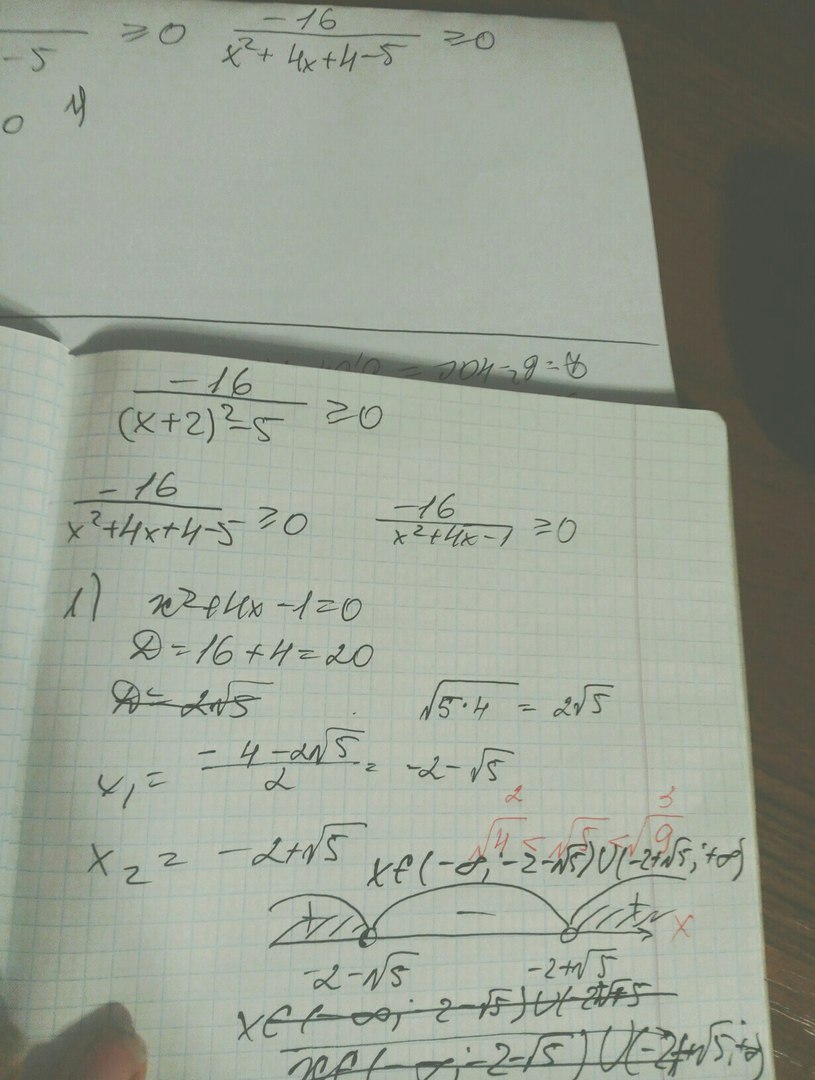 -5 ≥0 -16/(x²+4x+4-5) ≥0
0 1)
D=b²-4ac =
-16/((x+2)²-5) ≥0
-16/(x²+4x+4-5) ≥0 -16/(x²+4x-1) ≥0
1) x²+4x-1=0
D=16+4=20
D=2√5 √5·4 = 2√5
x₁= (-4-2√5)/2 = -2-√5
2 3
√4 < √5 < √9
x₂= -2+√5
x∈(-∞;-2-√5)∪(-2+√5;+∞)
+ - + x
-2-√5 -2+√5
x∈(-∞;-2-√5)∪(-2+√5
x∈(-∞;-2-√5)∪(-2+√5;+∞)